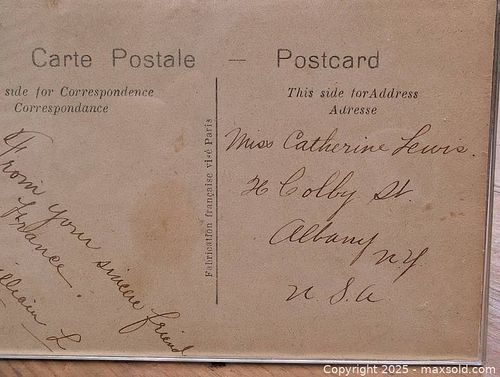 Carte Postale — Postcard
side for Correspondence
Correspondance
This side for Address
Adresse
Fabrication française visé Paris
From your sincere friend
France.
William L
Miss Catherine Lewis.
Colby St.
Albany N.Y.
U.S.A
Copyright © 2025 - maxsold.com